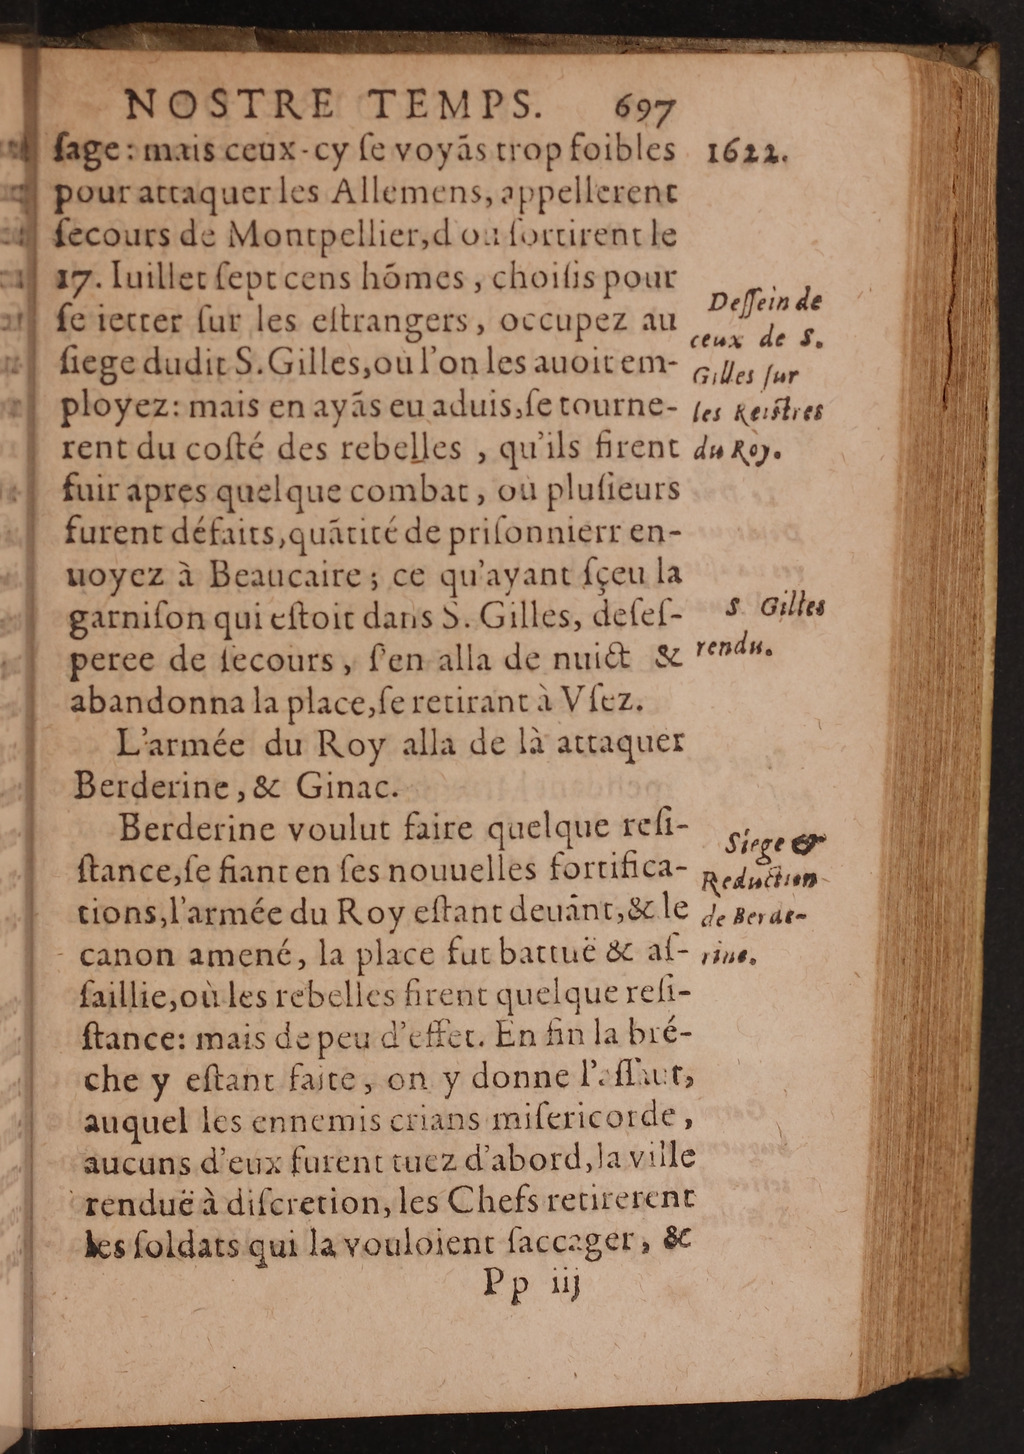 NOSTRE TEMPS. 697
ſage : mais ceux-cy ſe voyãs trop foibles
1622.
pour attaquer les Allemens, appellerent
ſecours de Montpellier, d où ſortirent le
17. Iuillet ſept cens hõmes, choiſis pour
ſe ietter ſur les eſtrangers, occupez au
ſiege dudit S. Gilles, où l'on les auoit em-
ployez: mais en ayãs eu aduis, ſe tourne-
rent du coſté des rebelles, qu'ils firent
Deſſein de
ceux de S.
Gilles ſur
les Reiſtres
du Roy.
fuir apres quelque combat, où pluſieurs
furent défaits, quãtité de priſonnierr en-
uoyez à Beaucaire; ce qu'ayant ſçeu la
garniſon qui eſtoit dans S. Gilles, deſeſ-
peree de ſecours, ſ'en alla de nuict &
abandonna la place, ſe retirant à Vſez.
S. Gilles
rendu.
L'armée du Roy alla de là attaquer
Berderine, & Ginac.
Berderine voulut faire quelque reſi-
ſtance, ſe fiant en ſes nouuelles fortifica-
tions, l'armée du Roy eſtant deuãnt, & le
canon amené, la place fut battuë & aſ-
Siege &
Reduction
de Berde-
rine.
ſaillie, où les rebelles firent quelque reſi-
ſtance: mais de peu d'effet. En fin la bré-
che y eſtant faite, on y donne l'aſſaut,
auquel les ennemis crians miſericorde,
aucuns d'eux furent tuez d'abord, la ville
renduë à diſcretion, les Chefs retirerent
les ſoldats qui la vouloient ſaccager, &
Pp iij